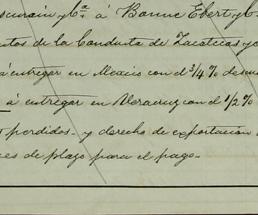 y Cª á Bonne Ebert y C
tos de la Conducta de Zacatecas y
á entregar en Mexico con el 3/4 %
á entregar en Veracruz con el 1/2 %
perdidos y derecho de exportacion
de plazo para el pago.